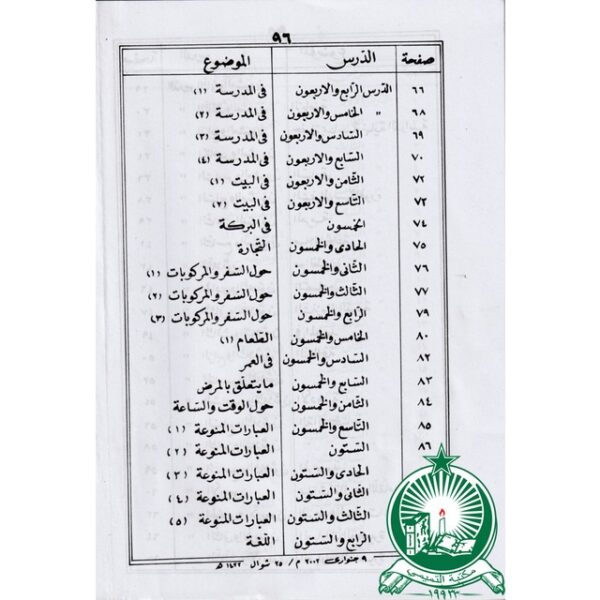 ٩٦
صفحة الدّرس الموضوع
٦٦ الدّرس الرّابع والاربعون فى المدرسة (١)
٦٨ " الخامس والاربعون فى المدرسة (٢)
٦٩ السّادس والاربعون فى المدرسة (٣)
٧٠ السّابع والاربعون فى المدرسة (٤)
٧٢ الثّامن والاربعون فى البيت (١)
٧٣ التّاسع والاربعون فى البيت (٢)
٧٤ الخمسون فى البركة
٧٥ الحادى والخمسون التّجارة
٧٦ الثّانى والخمسون حول السّفر والمركوبات (١)
٧٧ الثّالث والخمسون حول السّفر والمركوبات (٢)
٧٩ الرّابع والخمسون حول السّفر والمركوبات (٣)
٨٠ الخامس والخمسون (١)
٨٢ السّادس والخمسون فى العمر
٨٣ السّابع والخمسون ما يتعلّق بالمرض
٨٤ الثّامن والخمسون حول الوقت والسّاعة
٨٥ التّاسع والخمسون العبارات المنوعة (١)
٨٦ السّتون العبارات المنوعة (٢)
الحادى والسّتون العبارات المنوعة (٣)
الثّانى والسّتون العبارات المنوعة (٤)
الثّالث والسّتون العبارات المنوعة (٥)
الرّابع والستون اللّغة
٩ جنورى ٢٠٠٢ م / ٢٥ شوال ١٤٢٢ ھ
مكتبة التميمي